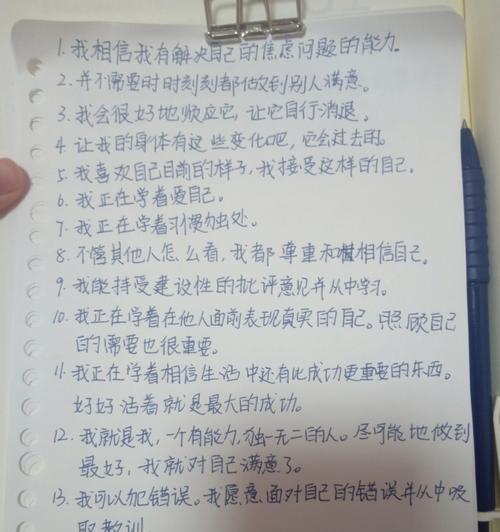 1. 我相信我有解决自己的焦虑问题的能力。
2. 并不需要时时刻刻都做到别人满意。
3. 我会很好地顺应它，让它自行消退。
4. 让我的身体有这些变化吧，它会过去的。
5. 我喜欢自己目前的样子，我接受这样的自己。
6. 我正在学着爱自己。
7. 我正在学着习惯独处。
8. 不管其他人怎么看，我都尊重和相信自己。
9. 我能接受建设性的批评意见并从中学习。
10. 我正在学着在他人面前表现真实的自己。照顾自己
的需要也很重要。
11. 我正在学着相信生活中还有比成功更重要的东西。
好好活着就是最大的成功。
12. 我就是我，一个有能力，独一无二的人。尽可能地做到
最好，我就对自己满意了。
13. 我可以犯错误。我愿意面对自己的错误并从中吸
取教训